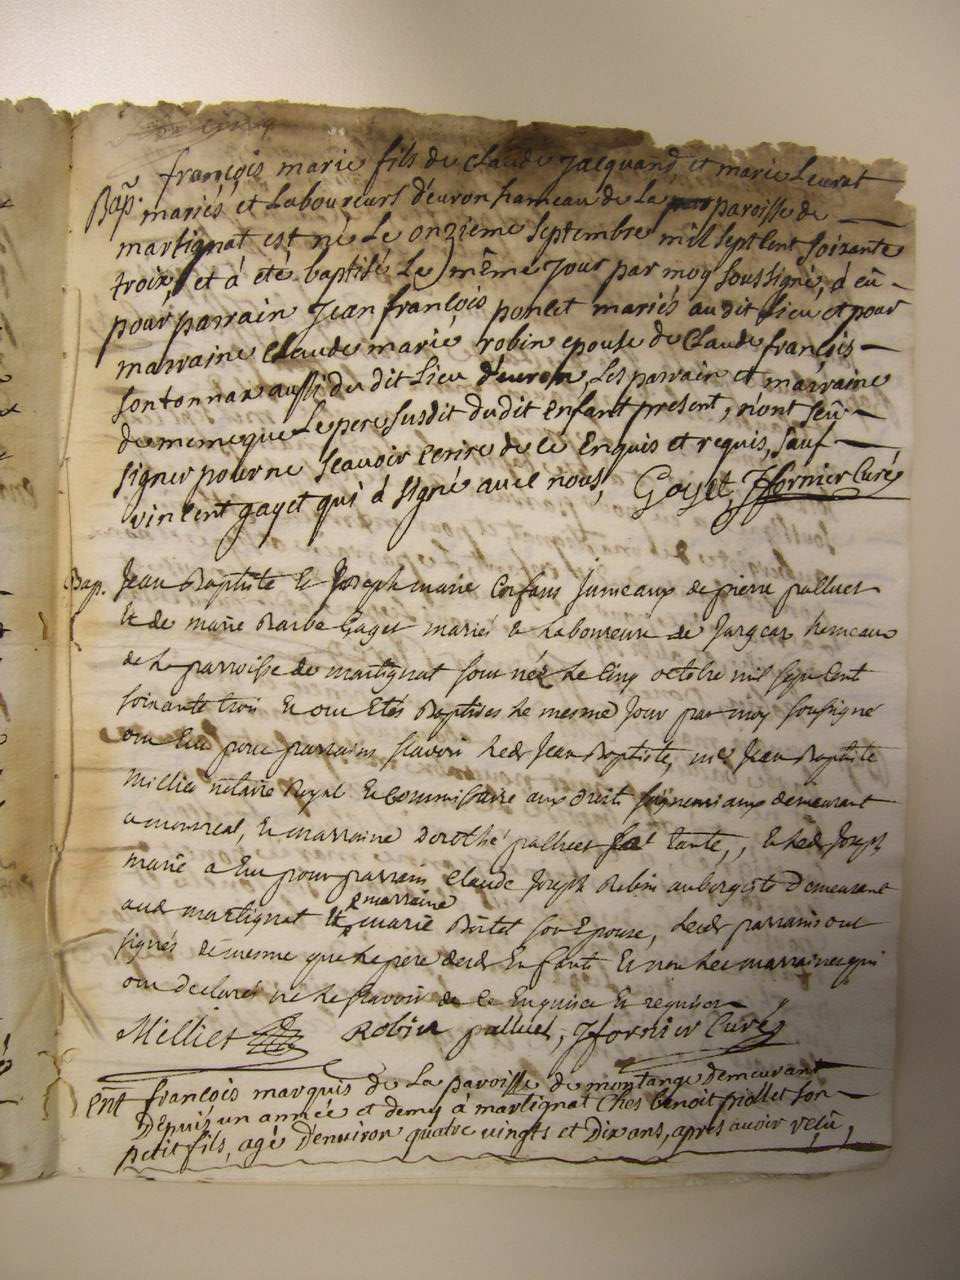 françois marie fils de Claude Jacquand, et marie Leurat
Bap. mariés et Laboureurs d'evron hameau de La paroisse de
martignat est né Le onzieme Septembre mil sept Cent soixante
troix, et à été baptisé Le même Jour par moy soussigné, à eû
pour parrain Jean françois poncet mariés au dit Lieu et pour
marraine Claude marie robin epouse de Claude françois
Sontonnax aussi du dit Lieu d'evron, Les parrain et marraine
de meme que Le pere susdit du dit Enfant présent, n'ont seû
signer pour ne scavoir ecrire de ce Enquis et requis, sauf
vincent gayet qui à signé avec nous, Gayet, Jfornier Curé
Bap. Jean Baptiste Et Joseph marie Enfans Jumeaux de pierre palluet
Et de marie Barbe Gayet mariés & Laboureurs de Jargeat hemeau
de La parroisse de martignat sont nés Le Cinq octobre mil sept Cent
soixante trois Et ont Etés Baptisés Le mesme Jour par moy sousigné
ont Eu pour parrains scavoir Led Jean Baptiste, me Jean Baptiste
Milliet notaire Royal Et Commissaire aux droits seigneuriaux demeurant
a montreal, Et marraine Dorothé palluet sa tante, & Led Joseph
marie a Eu pour parrain Claude Joseph Robin aubergiste Demeurant
aud martignat Et marraine marie Bertet son Epouse, Lesd parrains ont
signés de mesme que Le pere desd Enfants Et non Les marraines qui
ont declarés ne Le scavoir de Ce Enquises Et requises
Milliet Robin palluet, Jfornier Curé
Ent françois marquis de La paroisse de montange demeurant
Depuis un année et demy à martignat Ches benoit friollet son
petit fils, agé d'environ quatre vingts et Dix ans, après avoir reçû,